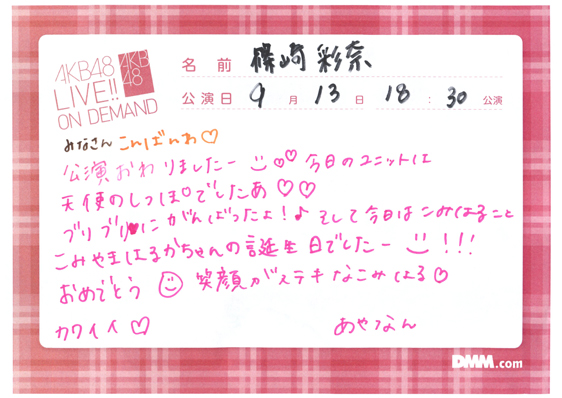 AKB48
LIVE!!
ON DEMAND
AKB
48
名前 篠崎彩奈
公演日 9月13日 18:30公演
みなさん こんばんわ♡
公演おわりましたー 今日のユニットは
天使のしっぽ♡でしたあ♡♡
ブリブリ♥にがんばったよ!♪ そして今日はこみはること
こみやまはるかちゃんの誕生日でしたー!!!
おめでとう 笑顔がステキなこみはる♡
カワイイ♡
あやなん
DMM.com